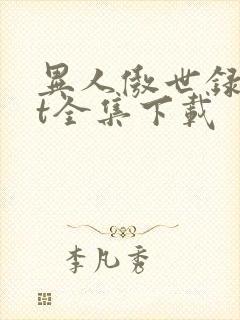 異人傲世録
t全集下載
李凡秀